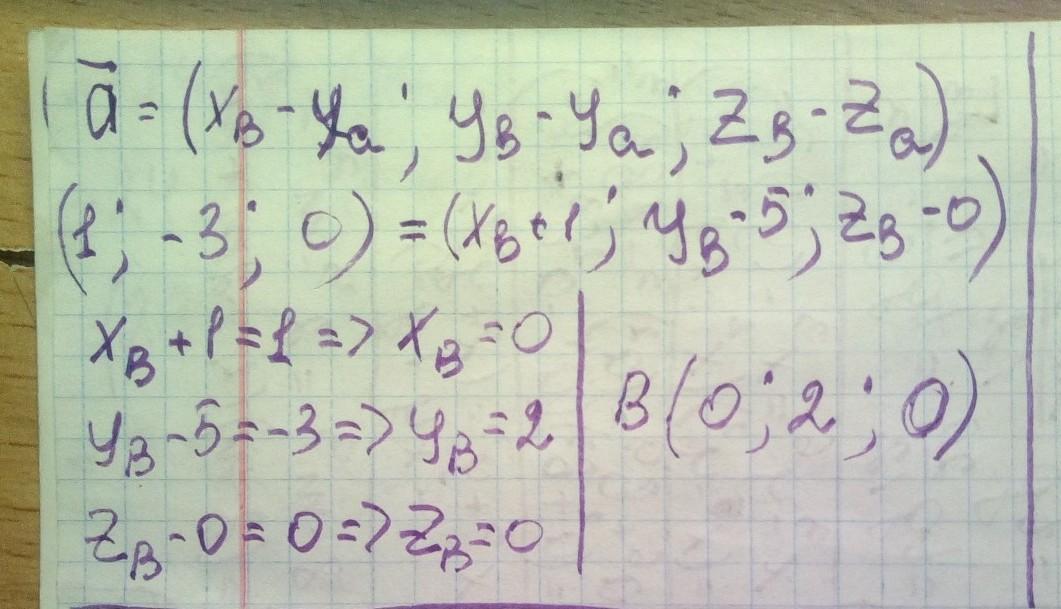 a⃗ = (x_B - y_a; y_B - y_a; z_B - z_a)
(1; -3; 0) = (x_B + 1; y_B - 5; z_B - 0)
x_B + 1 = 1 => x_B = 0
y_B - 5 = -3 => y_B = 2
z_B - 0 = 0 => z_B = 0
B(0; 2; 0)